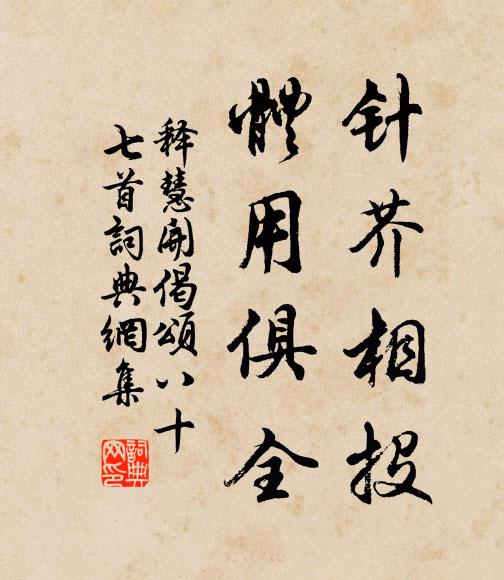 针芥相投
體用俱全
释慧開偈頌八十
七首詞典網集
詞典网印